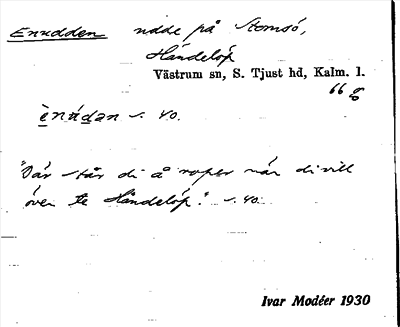 Enudden udde på Stomsö,
Händelöp
Västrum sn, S. Tjust hd, Kalm. l.
66 g
ènúdan s. 40.
"Där står di å roper när di vill
över te Händelöp". s. 40.
Ivar Modéer 1930